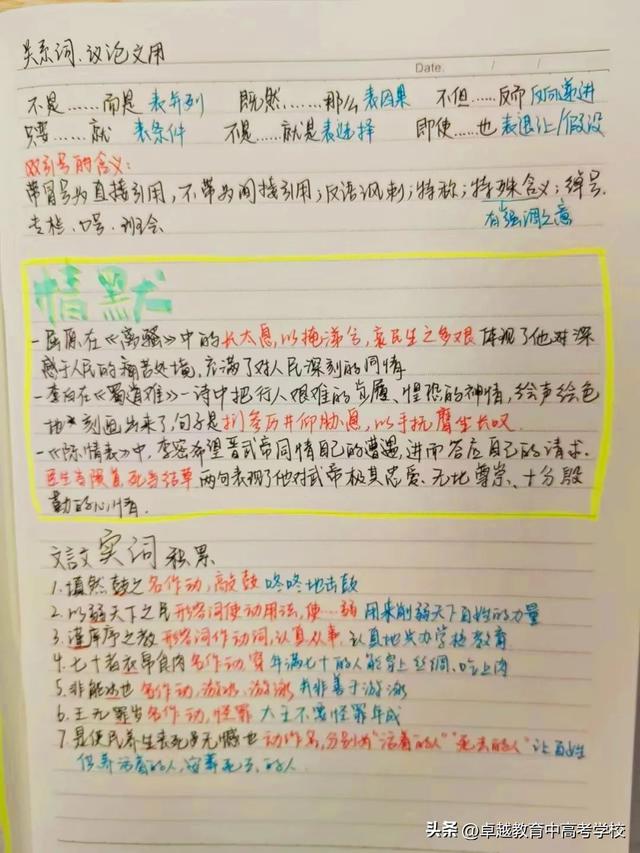 关系词、议论文用
Date.
不是……而是 表并列 既然……那么 表因果 不但……反而 反向递进
只要……就 表条件 不是……就是 表选择 即使……也 表退让/假设
双引号的含义:
带冒号为直接引用,不带为间接引用;反语讽刺;特称;特殊含义;绰号
专栏、口号、班会 有强调之意
情默
-屈原在《离骚》中的长太息,以掩涕兮,哀民生之多艰 体现了他对深
感于人民的痛苦处境,充满了对人民深刻的同情
-李白在《蜀道难》一诗中把行人艰难的步履、惶恐的神情,绘声绘色
地刻画出来了,句子是扪参历井仰胁息,以手抚膺坐长叹.
-《陈情表》中,李密希望晋武帝同情自己的遭遇,进而答应自己的请求.
臣生当陨首,死当结草 两句表现了他对武帝极其忠爱、无比尊崇、十分殷
勤的心情.
文言文实词积累
1.填然鼓之 名作动,敲鼓 咚咚地击鼓
2.以弱天下之民 形容词使动用法,使…弱 用来削弱天下百姓的力量
3.谨庠序之教 形容词作动词,认真从事,认真地兴办学校教育
4.七十者衣帛食肉 名作动,穿 年满七十的人能穿上丝绸、吃上肉
5.非能水也 名作动,游水,游泳 并非善于游泳
6.王无罪岁 名作动,怪罪 大王不要怪罪年成
7.是使民养生丧死无憾也 动作名,分别为"活着的人""死去的人" 让百姓
供养活着的人,安葬死去的人.
头条 @卓越教育中高考学校